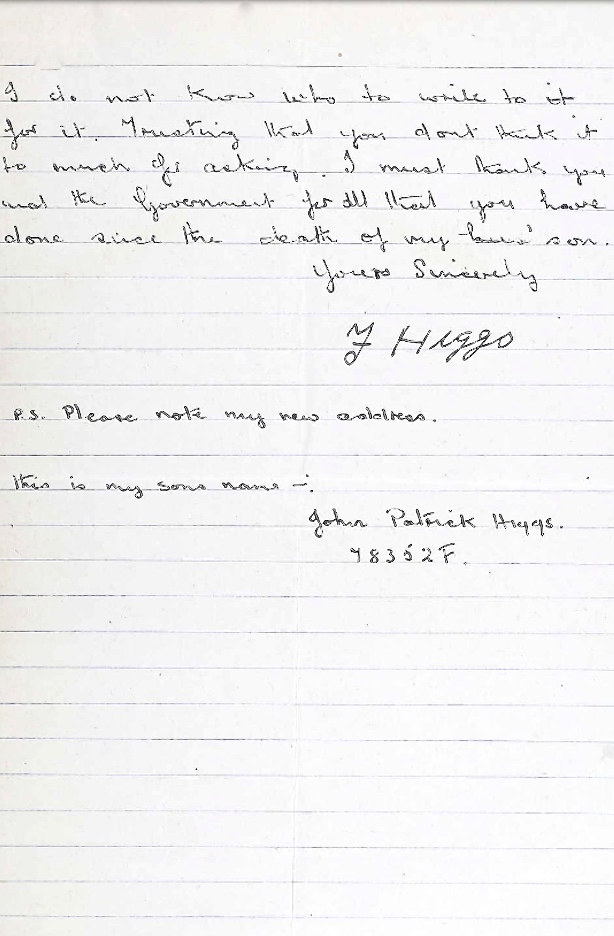 I do not know who to write to it
for it. Trusting that you dont think it
to much of asking, I must thank you
and the Government for all that you have
done since the death of my son.
Yours Sincerely
J Higgs
P.S. Please note my new address.
this is my sons name -:
John Patrick Higgs.
78352F.